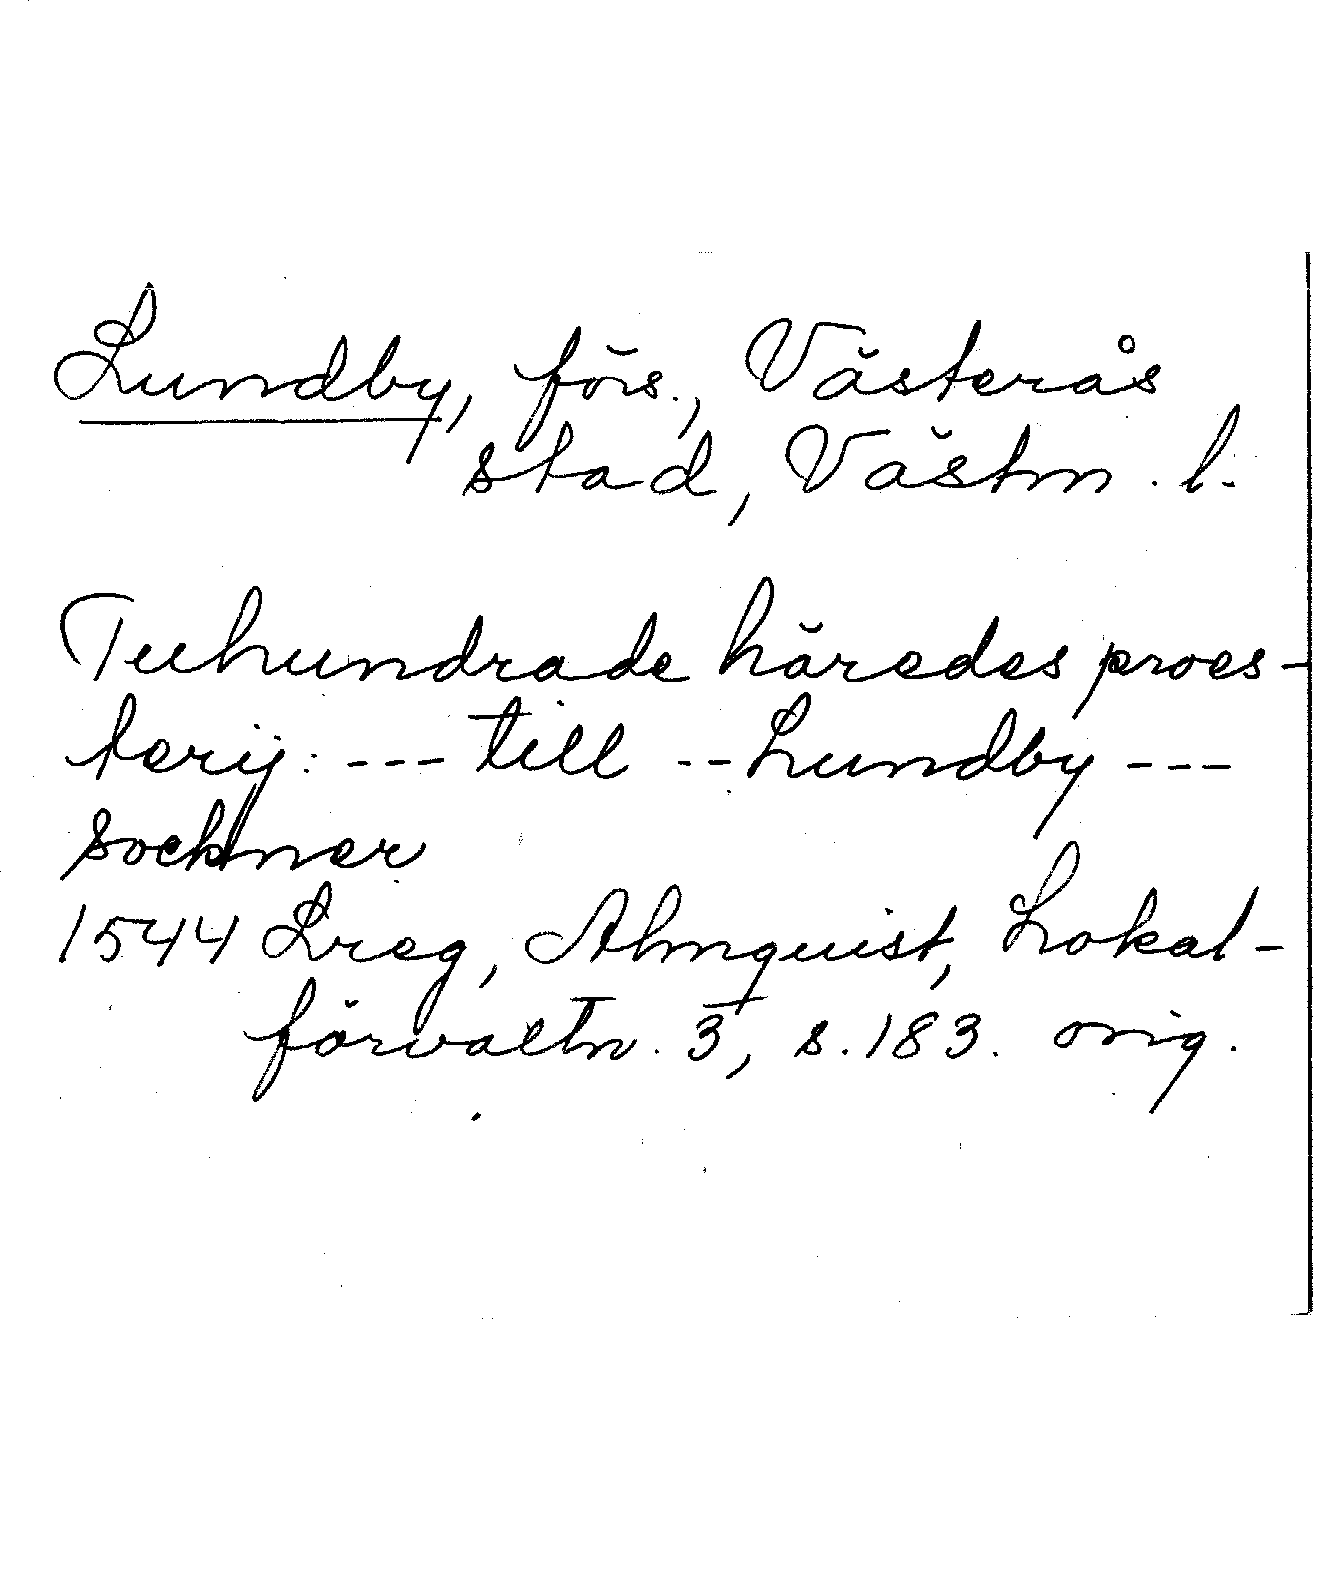 Lundby, förs., Västerås
stad, Västm. l.
Tuhundrade häredes proes-
terij: --- till -- Lundby ---
Sockner
1544 Lreg, Almquist, Lokal-
förvaltn. 3, s. 183. orig.